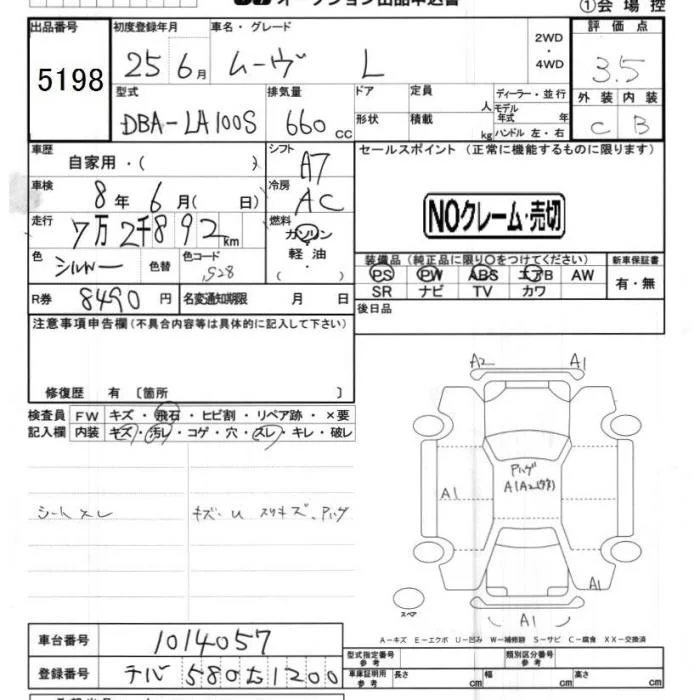 オークション出品申込書
①会場控
出品番号 初度登録年月 車名・グレード 2WD・4WD 評価点
5198 25年6月 ムーヴ L 3.5
型式 排気量 ドア 定員 人 ディーラー・並行 外装 内装
DBA-LA100S 660cc 形状 積載 kg モデル年式 年 ハンドル 左・右 C B
車歴 自家用・( ) シフト A7 セールスポイント(正常に機能するものに限ります)
車検 8年6月( 日) 冷房 AC
NOクレーム・売切
走行 7万2千892km 燃料 ガソリン 軽油 ・( )
色 シルバー 色替 色コード S28
装備品(純正品に限り○をつけてください) 新車保証書
PS PW ABS エアB AW 有・無
SR ナビ TV カワ
R券 8490円 名変通知期限 月 日 後日品
注意事項申告欄(不具合内容等は具体的に記入して下さい)
修復歴 有〔箇所 〕
検査員 FW キズ・飛石・ヒビ割・リペア跡・×要
記入欄 内装 キズ・汚レ・コゲ・穴・スレ・キレ・破レ
シートスレ キズ・U スリキズ、Pハゲ
A2 A1
Pハゲ
A1A2
A1
A1
スペア
( A1 )
A-キズ E-エクボ U-凹み W-補修跡 S-サビ C-腐食 XX-交換済
車台番号 1014057 型式指定番号 参考 類別区分番号 参考
登録番号 チバ 580 た 1200 車庫証明用 参考 長さ cm 幅 cm 高さ cm